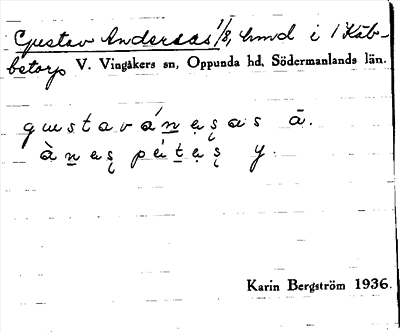 Gustav Anderssas 1/8, hmd i 1 Käb-
betorp V. Vingåkers sn, Oppunda hd, Södermanlands län.
gustavána̱şas ā.
à ṉ a ş pá ṯ ạ ş y.
Karin Bergström 1936.